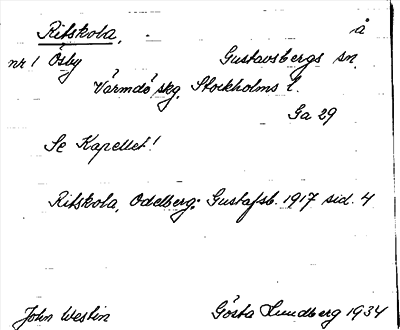 Ritskola. å
nr 1 Ösby Gustavsbergs sn.
Värmdö skg. Stockholms l.
Ga 29
Se Kapellet!
Ritskola, Odelberg. Gustafsb. 1917 sid. 4
John Westin Gösta Lundberg 1934